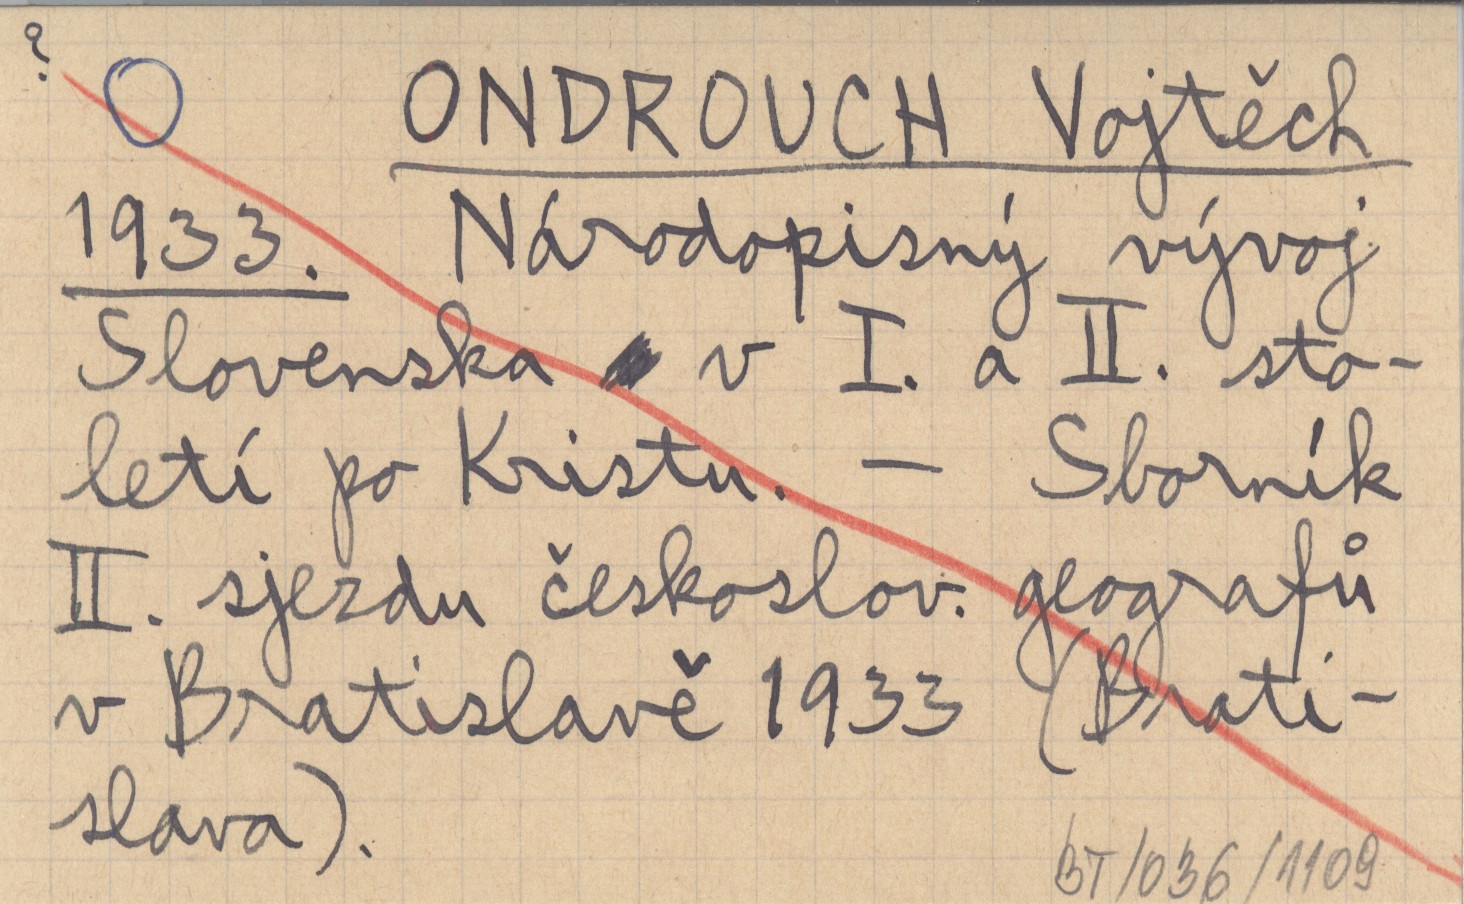 ?
ONDROUCH Vojtěch
1933. Národopisný vývoj
Slovenska v I. a II. sto-
letí po Kristu. — Sborník
II. sjezdu českoslov. geografů
v Bratislavě 1933 (Brati-
slava).
BT/036/1109